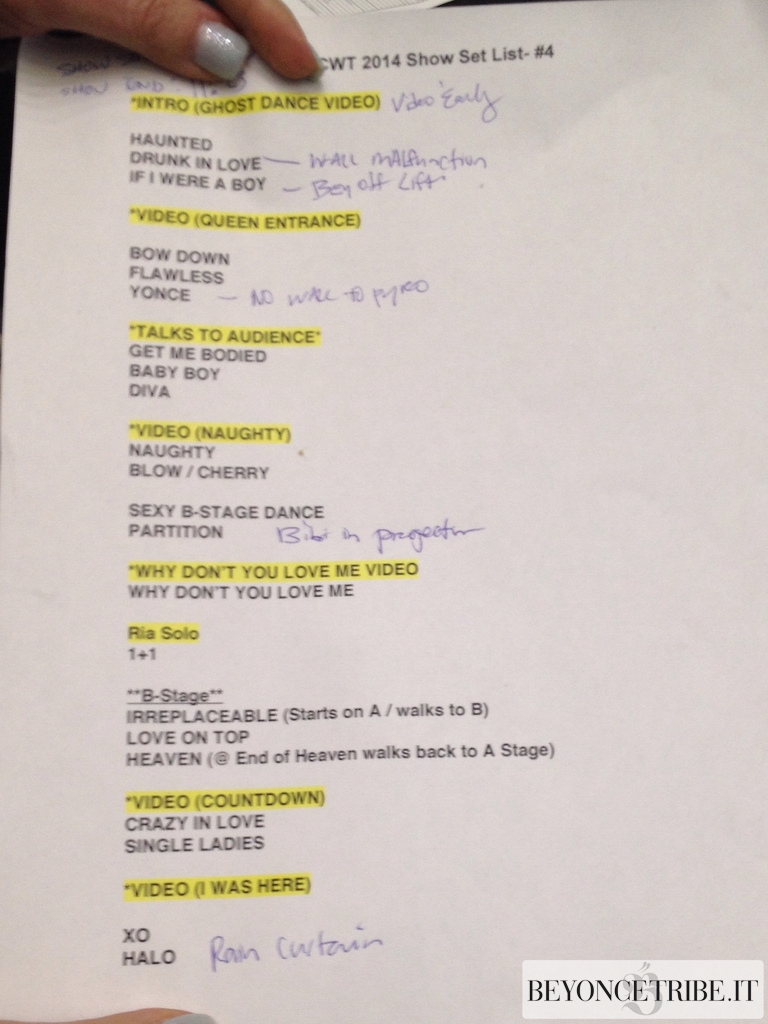 SHOW
CWT 2014 Show Set List- #4
SHOW END:
*INTRO (GHOST DANCE VIDEO) Video Early
HAUNTED
DRUNK IN LOVE — WALL MALfunction
IF I WERE A BOY — Bey off Lift
*VIDEO (QUEEN ENTRANCE)
BOW DOWN
FLAWLESS
YONCE — NO WALL to pyRO
*TALKS TO AUDIENCE*
GET ME BODIED
BABY BOY
DIVA
*VIDEO (NAUGHTY)
NAUGHTY
BLOW / CHERRY
SEXY B-STAGE DANCE
PARTITION in projector
*WHY DON'T YOU LOVE ME VIDEO
WHY DON'T YOU LOVE ME
Ria Solo
1+1
**B-Stage**
IRREPLACEABLE (Starts on A / walks to B)
LOVE ON TOP
HEAVEN (@ End of Heaven walks back to A Stage)
*VIDEO (COUNTDOWN)
CRAZY IN LOVE
SINGLE LADIES
*VIDEO (I WAS HERE)
XO
HALO Rain Curtain
BEYONCETRIBE.IT